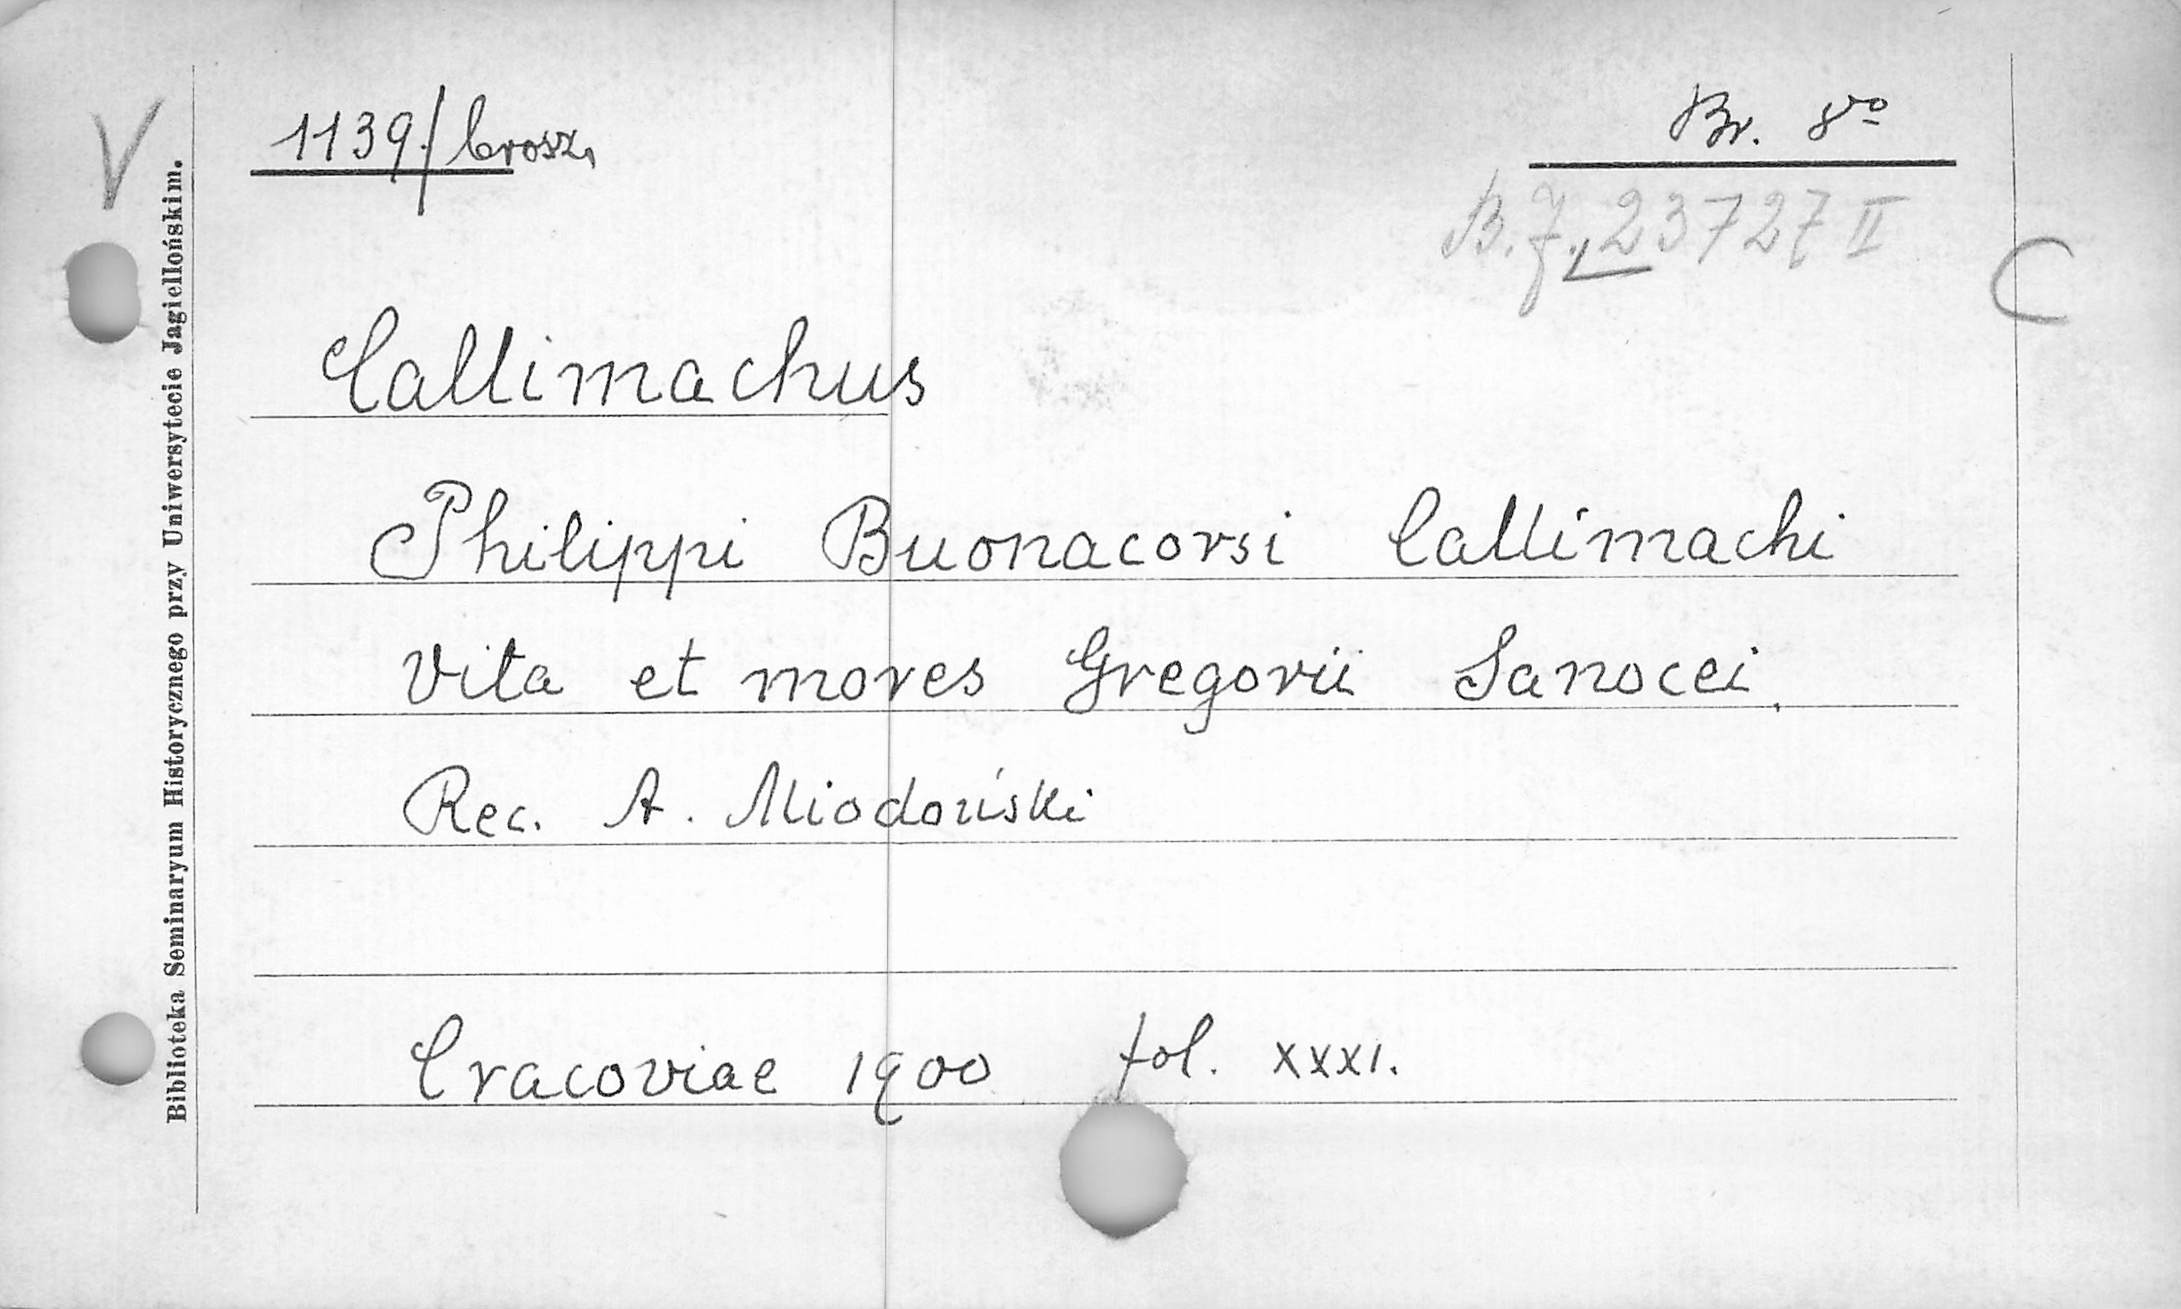 V
1139./brosz.
Br. 8vo
B.J. 23727 II
C
Callimachus
Philippi Buonacorsi Callimachi
Vita et mores Gregorii Sanocei.
Rec. A. Miodoński
Cracoviae 1900 fol. XXXI.
Biblioteka Seminaryum Historycznego przy Uniwersytecie Jagiellońskim.